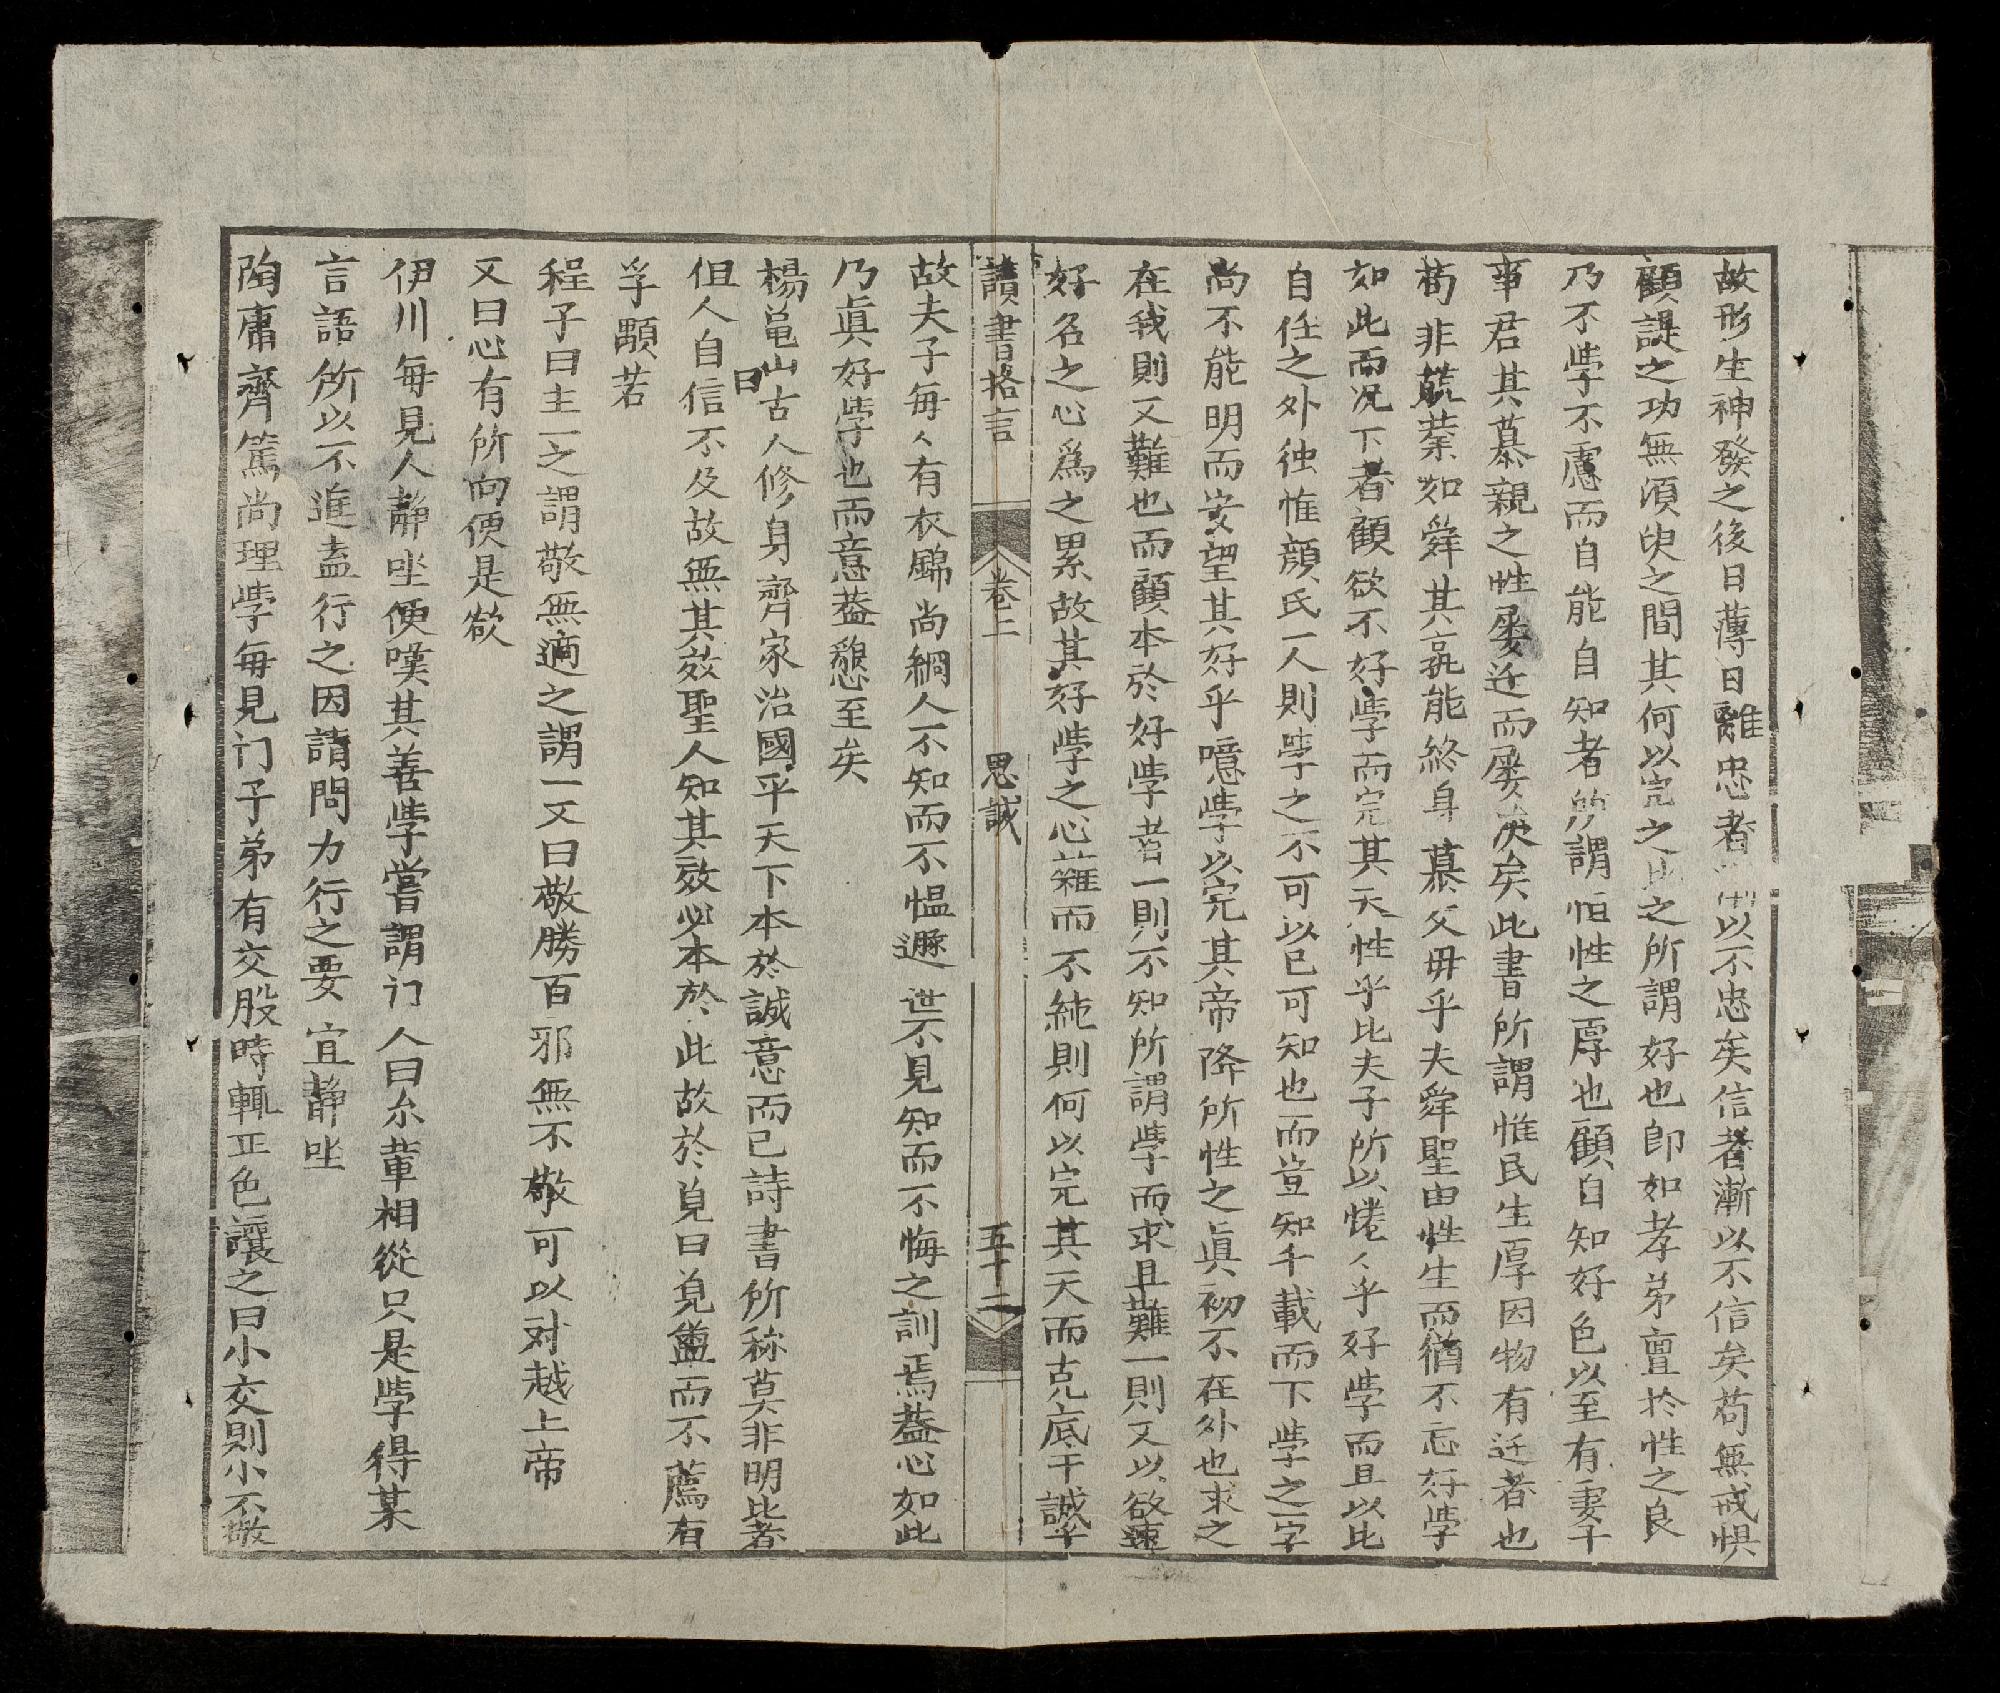 故形生神發之後日薄日離忠者漸以不忠矣信者漸以不信矣苟無戒惧
顧諟之功無須臾之間其何以完之此之所謂好也即如孝弟亶於性之良
乃不斈不慮而自能自知者所謂恒性之厚也顧自知好色以至有妻子
事君其慕親之性屡迁而屡决矣此書所謂惟民生厚因物有迁者也
苟非蒸蒸如舜其孰能終身慕父毋乎夫舜聖由性生而猶不忘好斈
如此而况下者顧欲不好斈而完其天性乎此夫子所以惓〻乎好斈而且以比
自任之外独惟顔氏一人則斈之不可以已可知也而豈知千載而下斈之一字
尚不能明而安望其好乎噫斈以完其帝降所性之眞初不在外也求之
在我則又難也而顧本於好斈者一則不知所謂斈而求且難一則又以欲速
好名之心爲之累故其好斈之心雜而不純則何以完其天而克底于誠斈
讀書格言 卷二 思誠 五十二
故夫子每〻有衣錦尚絅人不知而不愠遯世不見知而不悔之訓焉葢心如此
乃眞好斈也而意葢懇至矣
楊龜山曰古人修身齊家治國平天下本於誠意而已詩書所称莫非明此者
但人自信不及故無其效聖人知其效必本於此故於覌曰覌盥而不薦有
孚顒若
程子曰主一之謂敬無適之謂一又曰敬勝百邪無不敬可以対越上帝
又曰心有所向便是慾
伊川每見人静坐便嘆其善斈嘗謂门人曰尔輩相從只是斈得某
言語所以不進盍行之因請問力行之要宜静坐
陶庸齊篤尚理斈每見门子弟有交股時輒正色讓之曰小交則小不敬